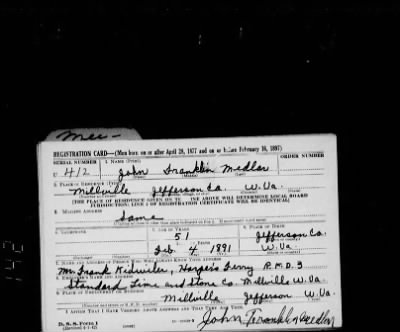 Mec-
REGISTRATION CARD—(Men born on or after April 28, 1877 and on or before February 16, 1897)
SERIAL NUMBER 1. NAME (Print) ORDER NUMBER
U 412 John Franklin Medlar
2. PLACE OF RESIDENCE (Print)
Millville Jefferson Co. W. Va.
[THE PLACE OF RESIDENCE GIVEN ON THE LINE ABOVE WILL DETERMINE LOCAL BOARD
JURISDICTION; LINE 2 OF REGISTRATION CERTIFICATE WILL BE IDENTICAL]
3. MAILING ADDRESS
Same
4. TELEPHONE 5. AGE IN YEARS 6. PLACE OF BIRTH
51 Jefferson Co.
DATE OF BIRTH
Feb 4 1891 W. Va.
7. NAME AND ADDRESS OF PERSON WHO WILL ALWAYS KNOW YOUR ADDRESS
Mr. Frank Kidwiler, Harpers Ferry R.F.D. 3
8. EMPLOYER'S NAME AND ADDRESS
Standard Lime and Stone Co. Millville W. Va.
9. PLACE OF EMPLOYMENT OR BUSINESS
Millville Jefferson W. Va.
I AFFIRM THAT I HAVE VERIFIED ABOVE ANSWERS AND THAT THEY ARE TRUE.
D. S. S. Form 1 John Franklin Medlar